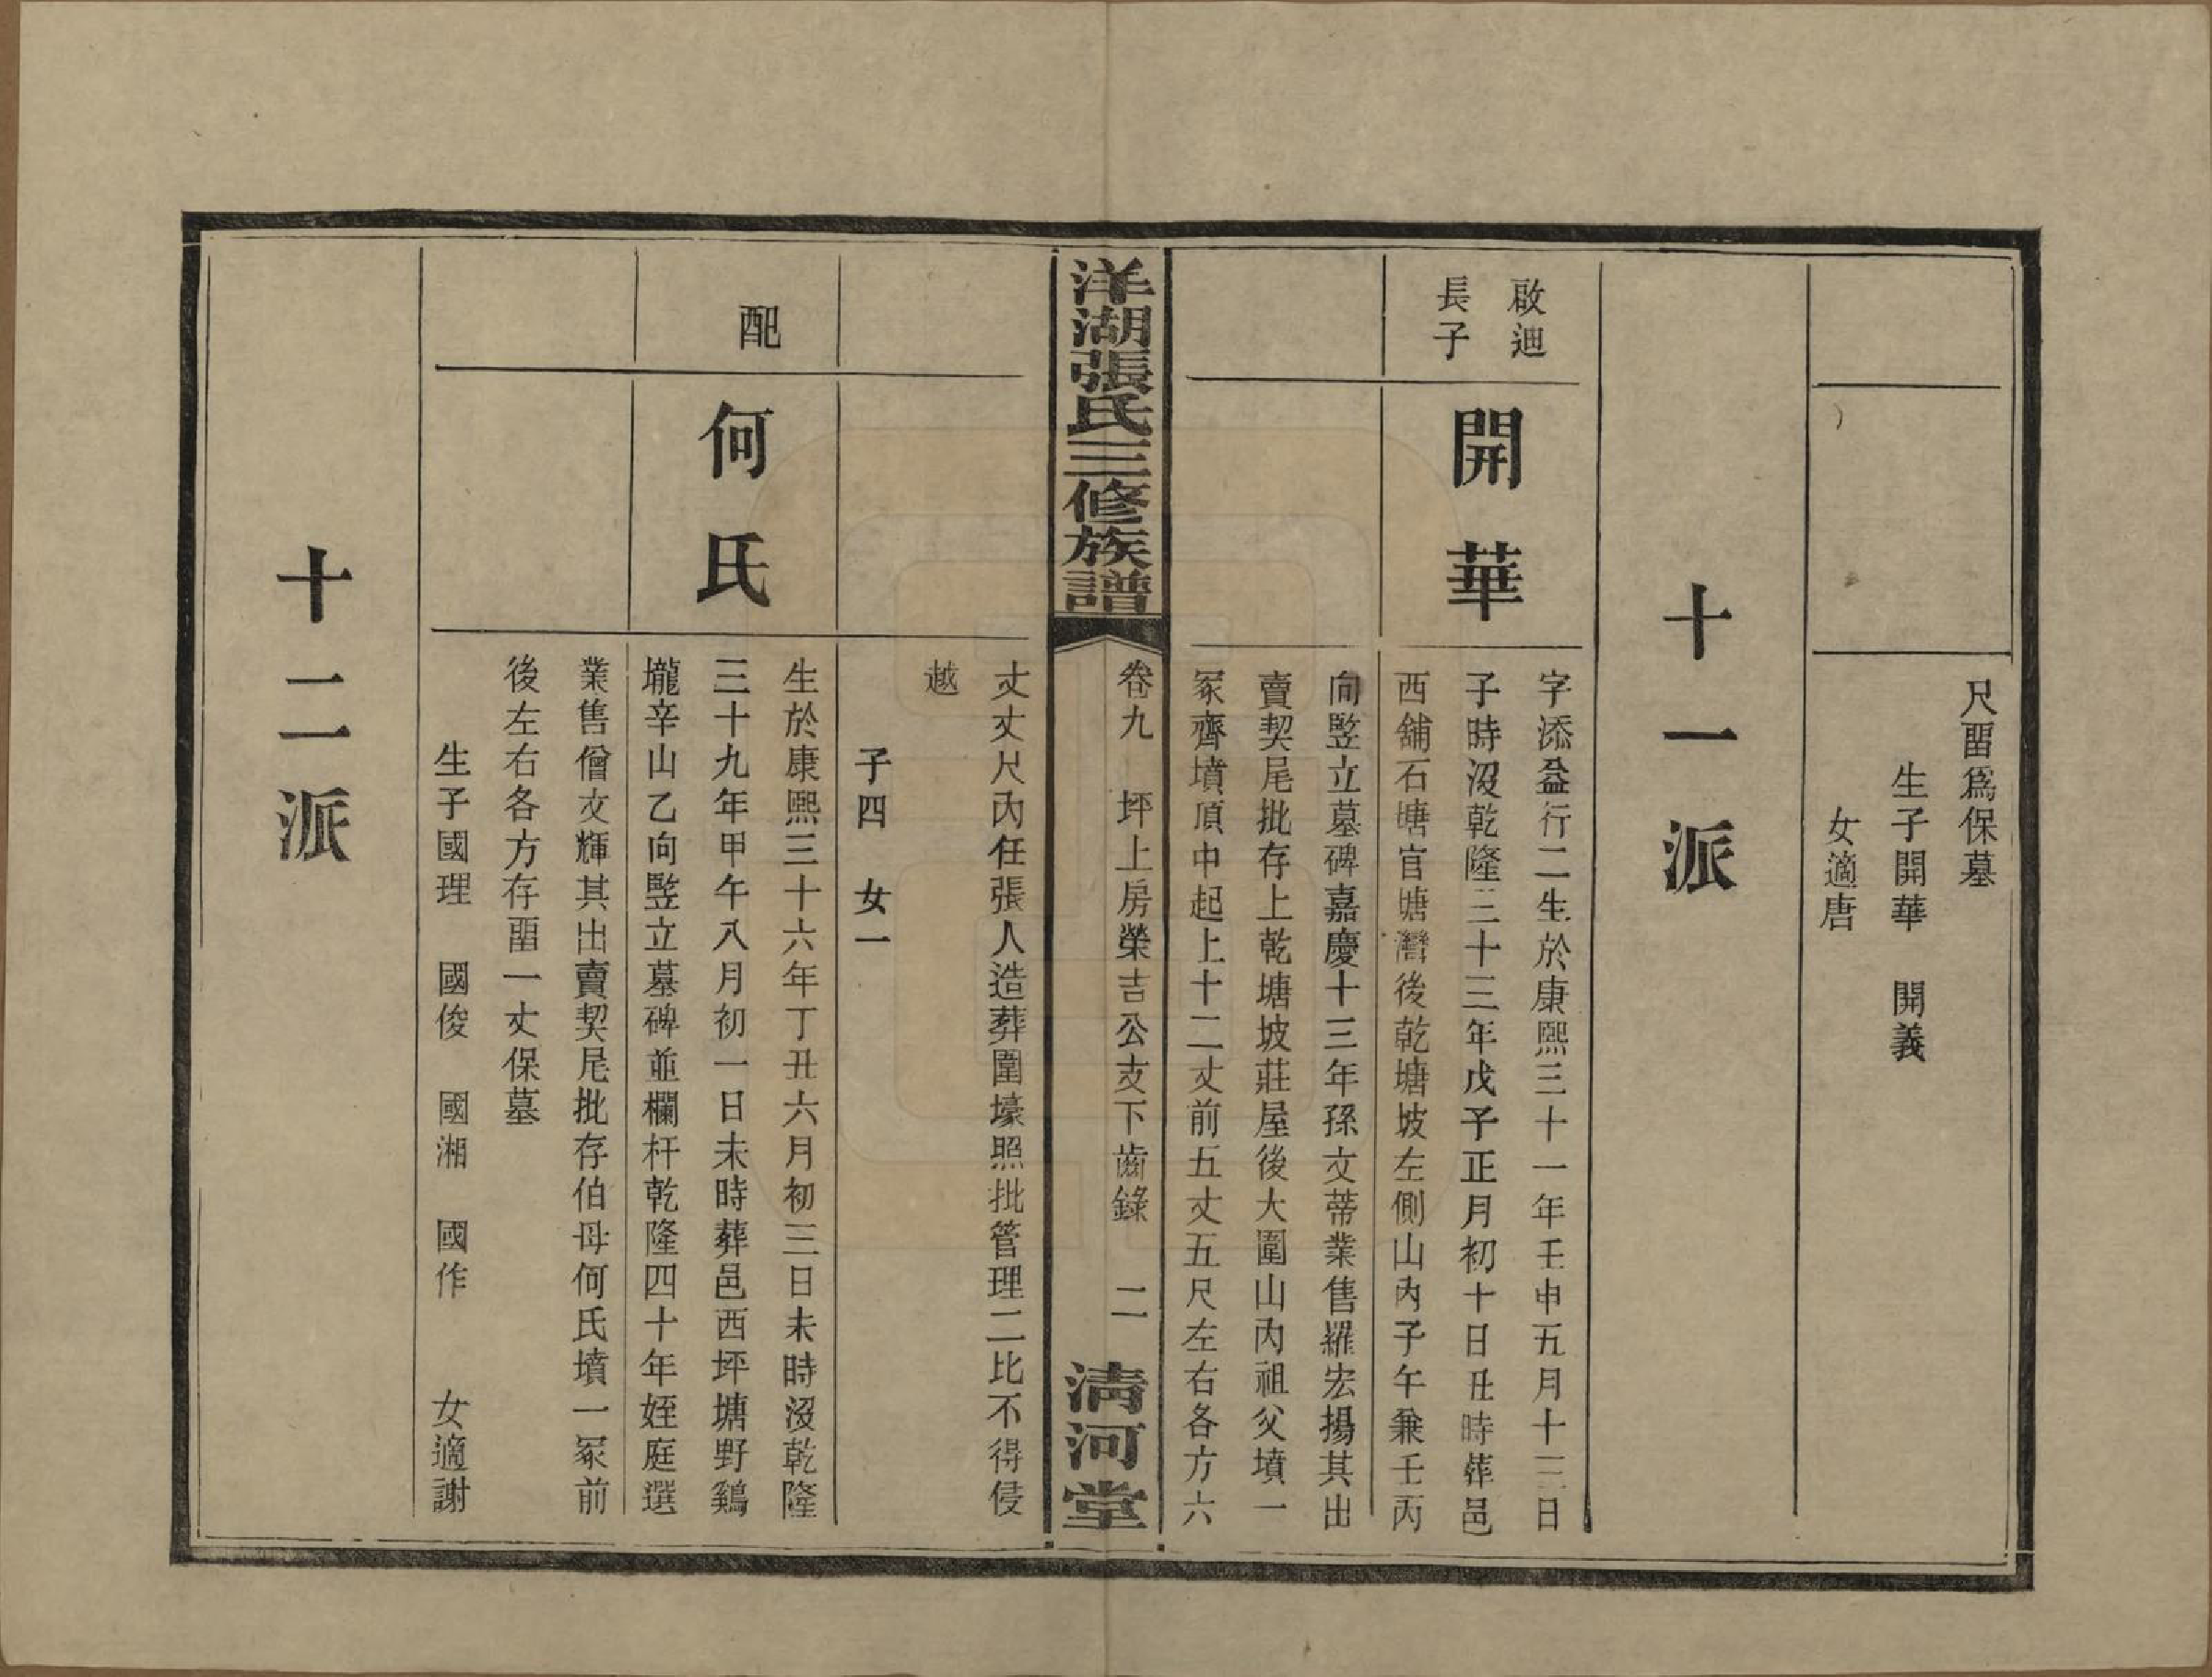 尺畱爲保墓
生子開華　開義
女適唐
十一派
啟迪
長子
開華
字添益行二生於康熙三十一年壬申五月十三日
子時沒乾隆三十三年戊子正月初十日丑時葬邑
西舖石塘官塘灣後乾塘坡左側山內子午兼壬丙
向竪立墓碑嘉慶十三年孫文蒂業售羅宏揚其出
賣契尾批存上乾塘坡莊屋後大圍山內祖父墳一
冢齊墳頂中起上十二丈前五丈五尺左右各方六
洋湖張氏三修族譜
卷九　坪上房榮吉公支下齒錄　二
清河堂
丈丈尺內任張人造葬圍壕照批管理二比不得侵
越
子四　女一
配
何氏
生於康熙三十六年丁丑六月初三日未時沒乾隆
三十九年甲午八月初一日未時葬邑西坪塘野鷄
壠辛山乙向竪立墓碑並欄杆乾隆四十年姪庭選
業售僧文輝其出賣契尾批存伯母何氏墳一冢前
後左右各方存畱一丈保墓
生子國理　國俊　國湘　國作　女適謝
十二派